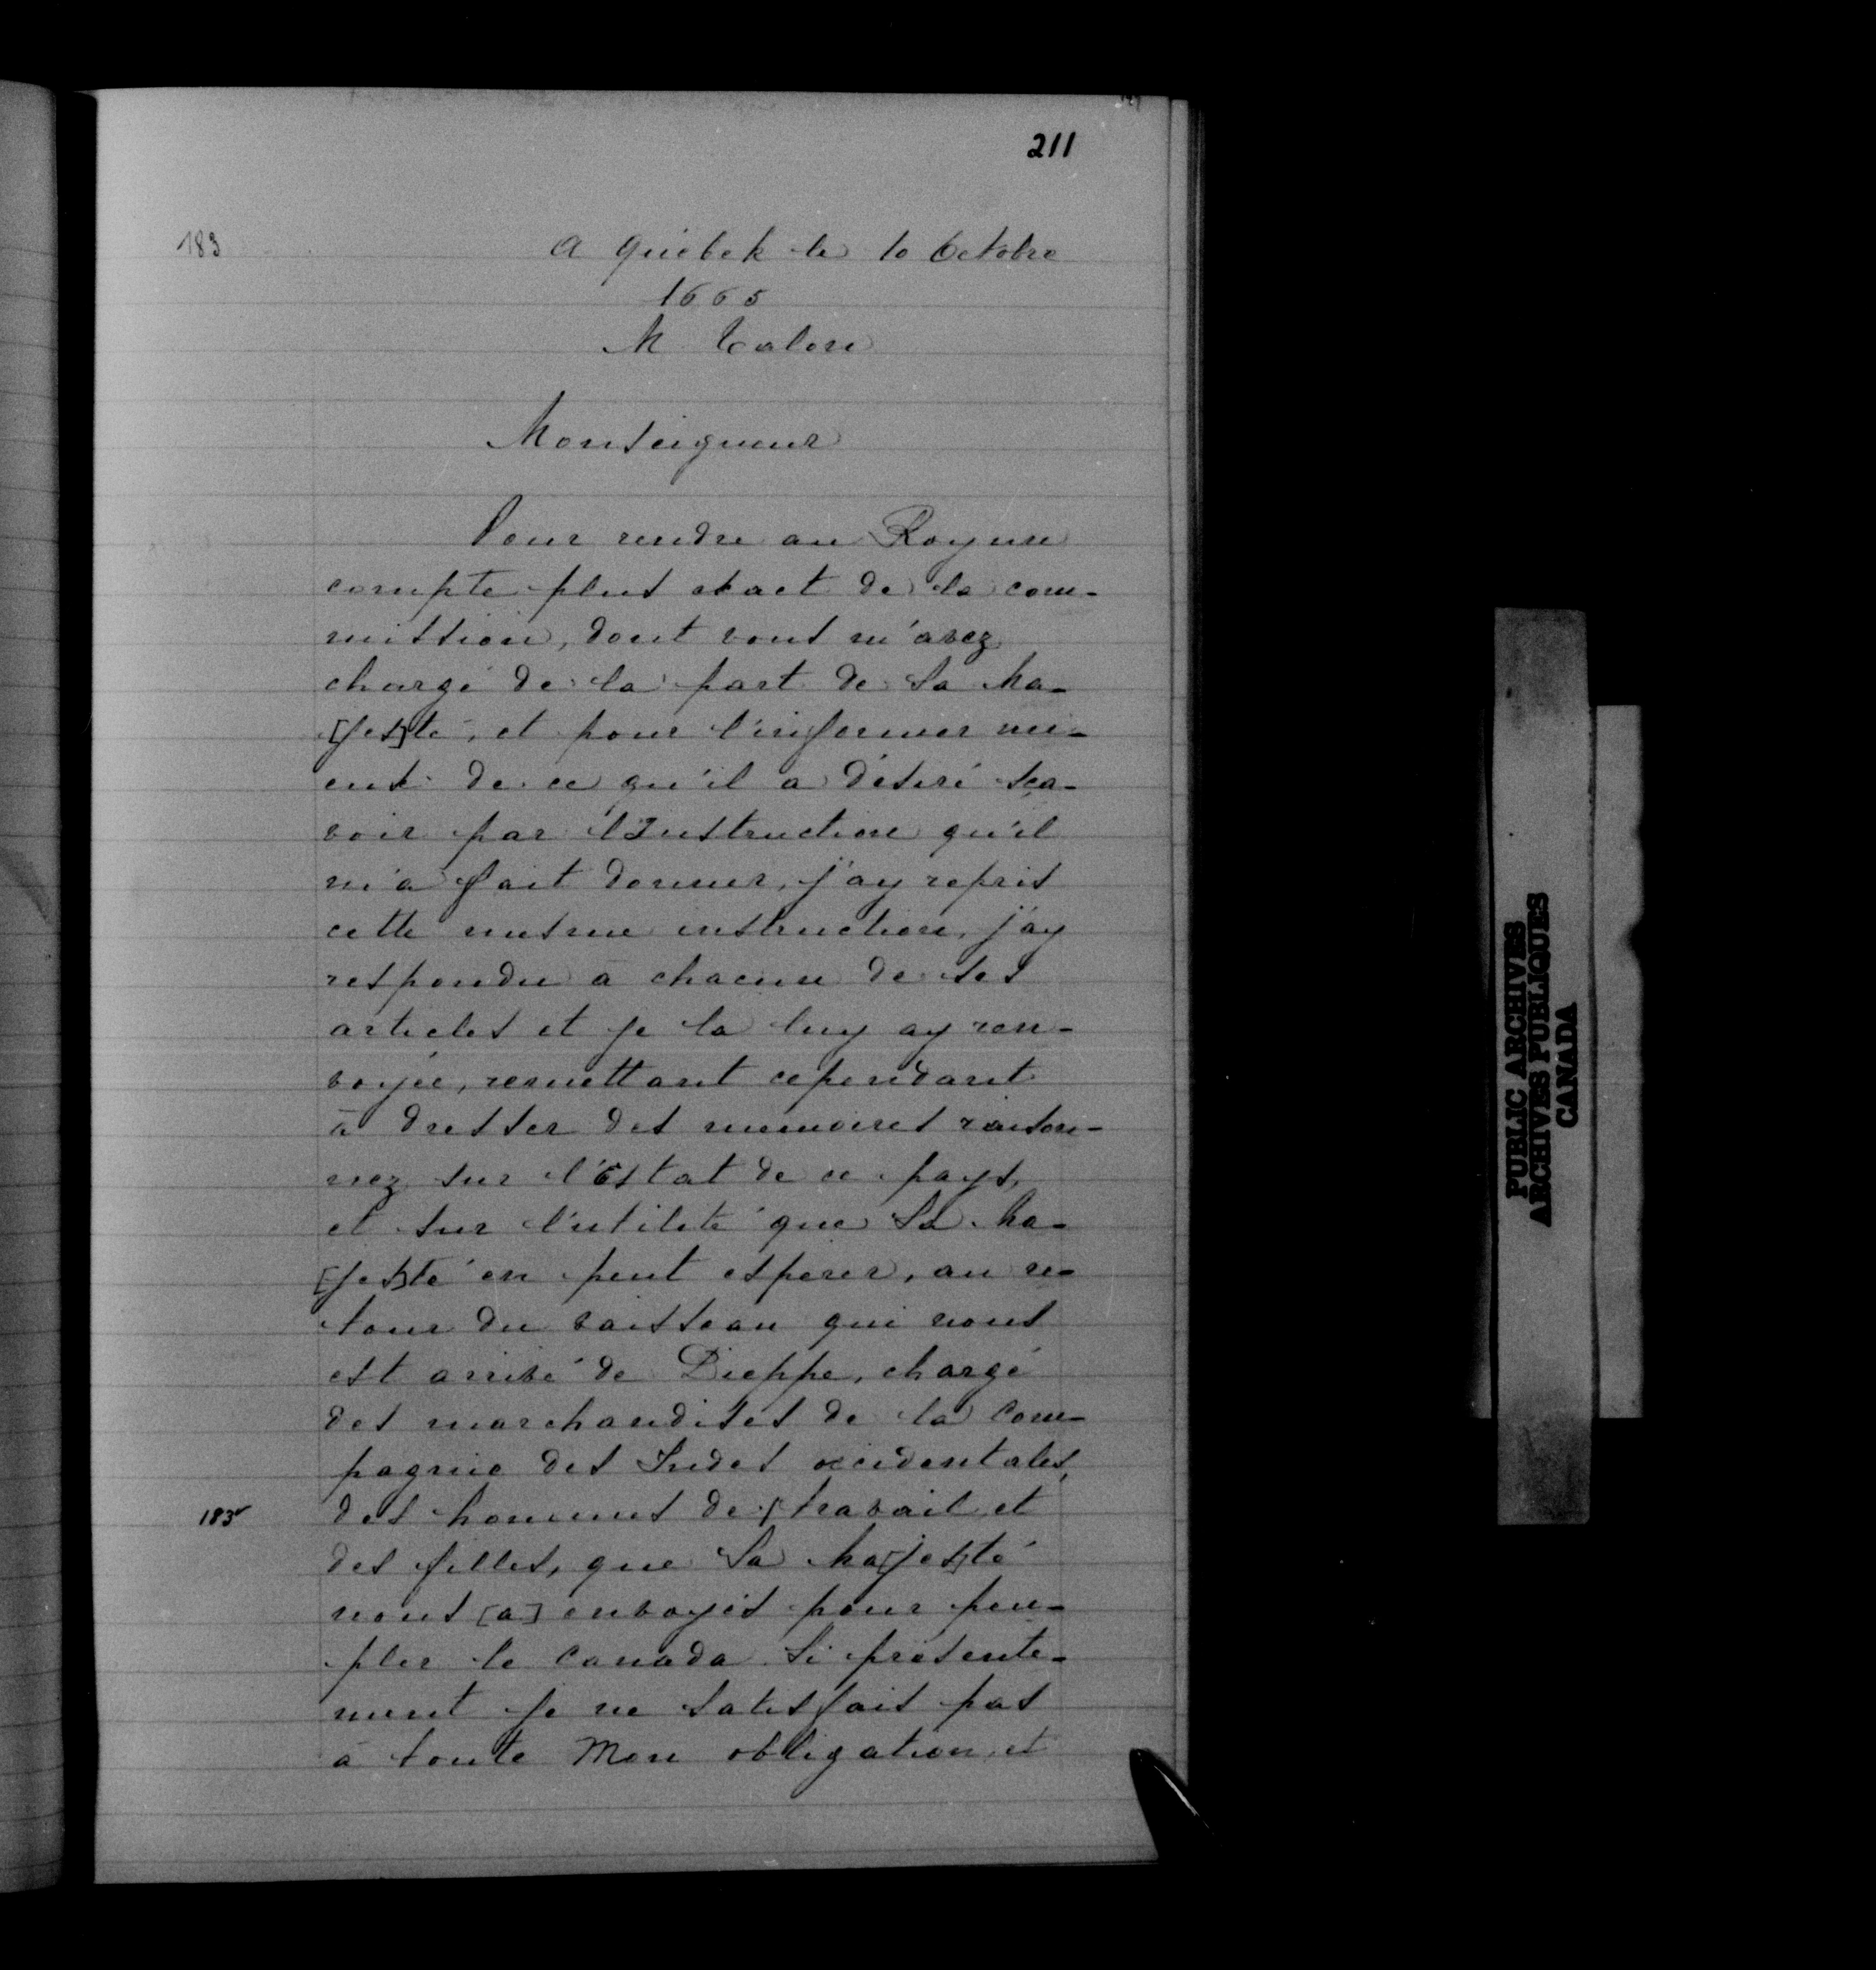 211
183
A Quebek le 10 Octobre
1665
M Talon
Monseigneur
Pour rendre au Roy un
compte plus exact de la com-
mission, dont vous m'avez
chargé de la part de Sa Ma-
[jes]té, et pour l'informer mi-
eux de ce qu'il a désiré sça-
voir par l'Instruction qu'il
m'a fait donner, j'ay repris
cette mesme instruction, j'ay
respondu à chacun de ses
articles et je la luy ay ren-
voyée, remettant cependant
à dresser des memoires raison-
nez sur l'Estat de ce pays,
et sur l'utilité que Sa Ma-
[jes]té en peut esperer, au re-
tour du vaisseau qui nous
est arrivé de Dieppe, chargé
des marchandises de la Com-
pagnie des Indes occidentales,
183v des hommes de / travail et
des filles, que Sa Ma[jes]té
nous [a] envoyés pour peu-
pler le Canada. Si présente-
ment je ne satisfais pas
à toute Mon obligation, et
PUBLIC ARCHIVES
ARCHIVES PUBLIQUES
CANADA